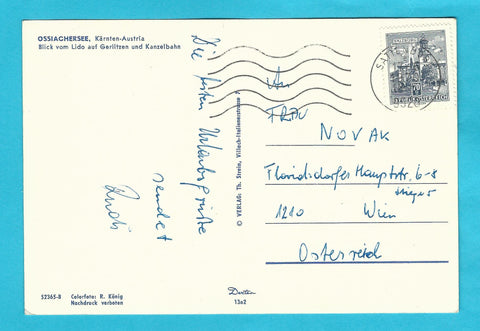 OSSIACHERSEE, Kärnten-Austria
Blick vom Lido auf Gerlitzen und Kanzelbahn
Die besten Urlaubsgrüße
sendet
Rudi
© VERLAG: Th. Strein, Villach-Italienerstrasse
An
FRAU
NOVAK
Floridsdorfer Hauptstr. 6-8
Stiege 5
1210 Wien
Österreich
REPUBLIK ÖSTERREICH
52365-B Colorfoto: R. König
Nachdruck verboten
13a2